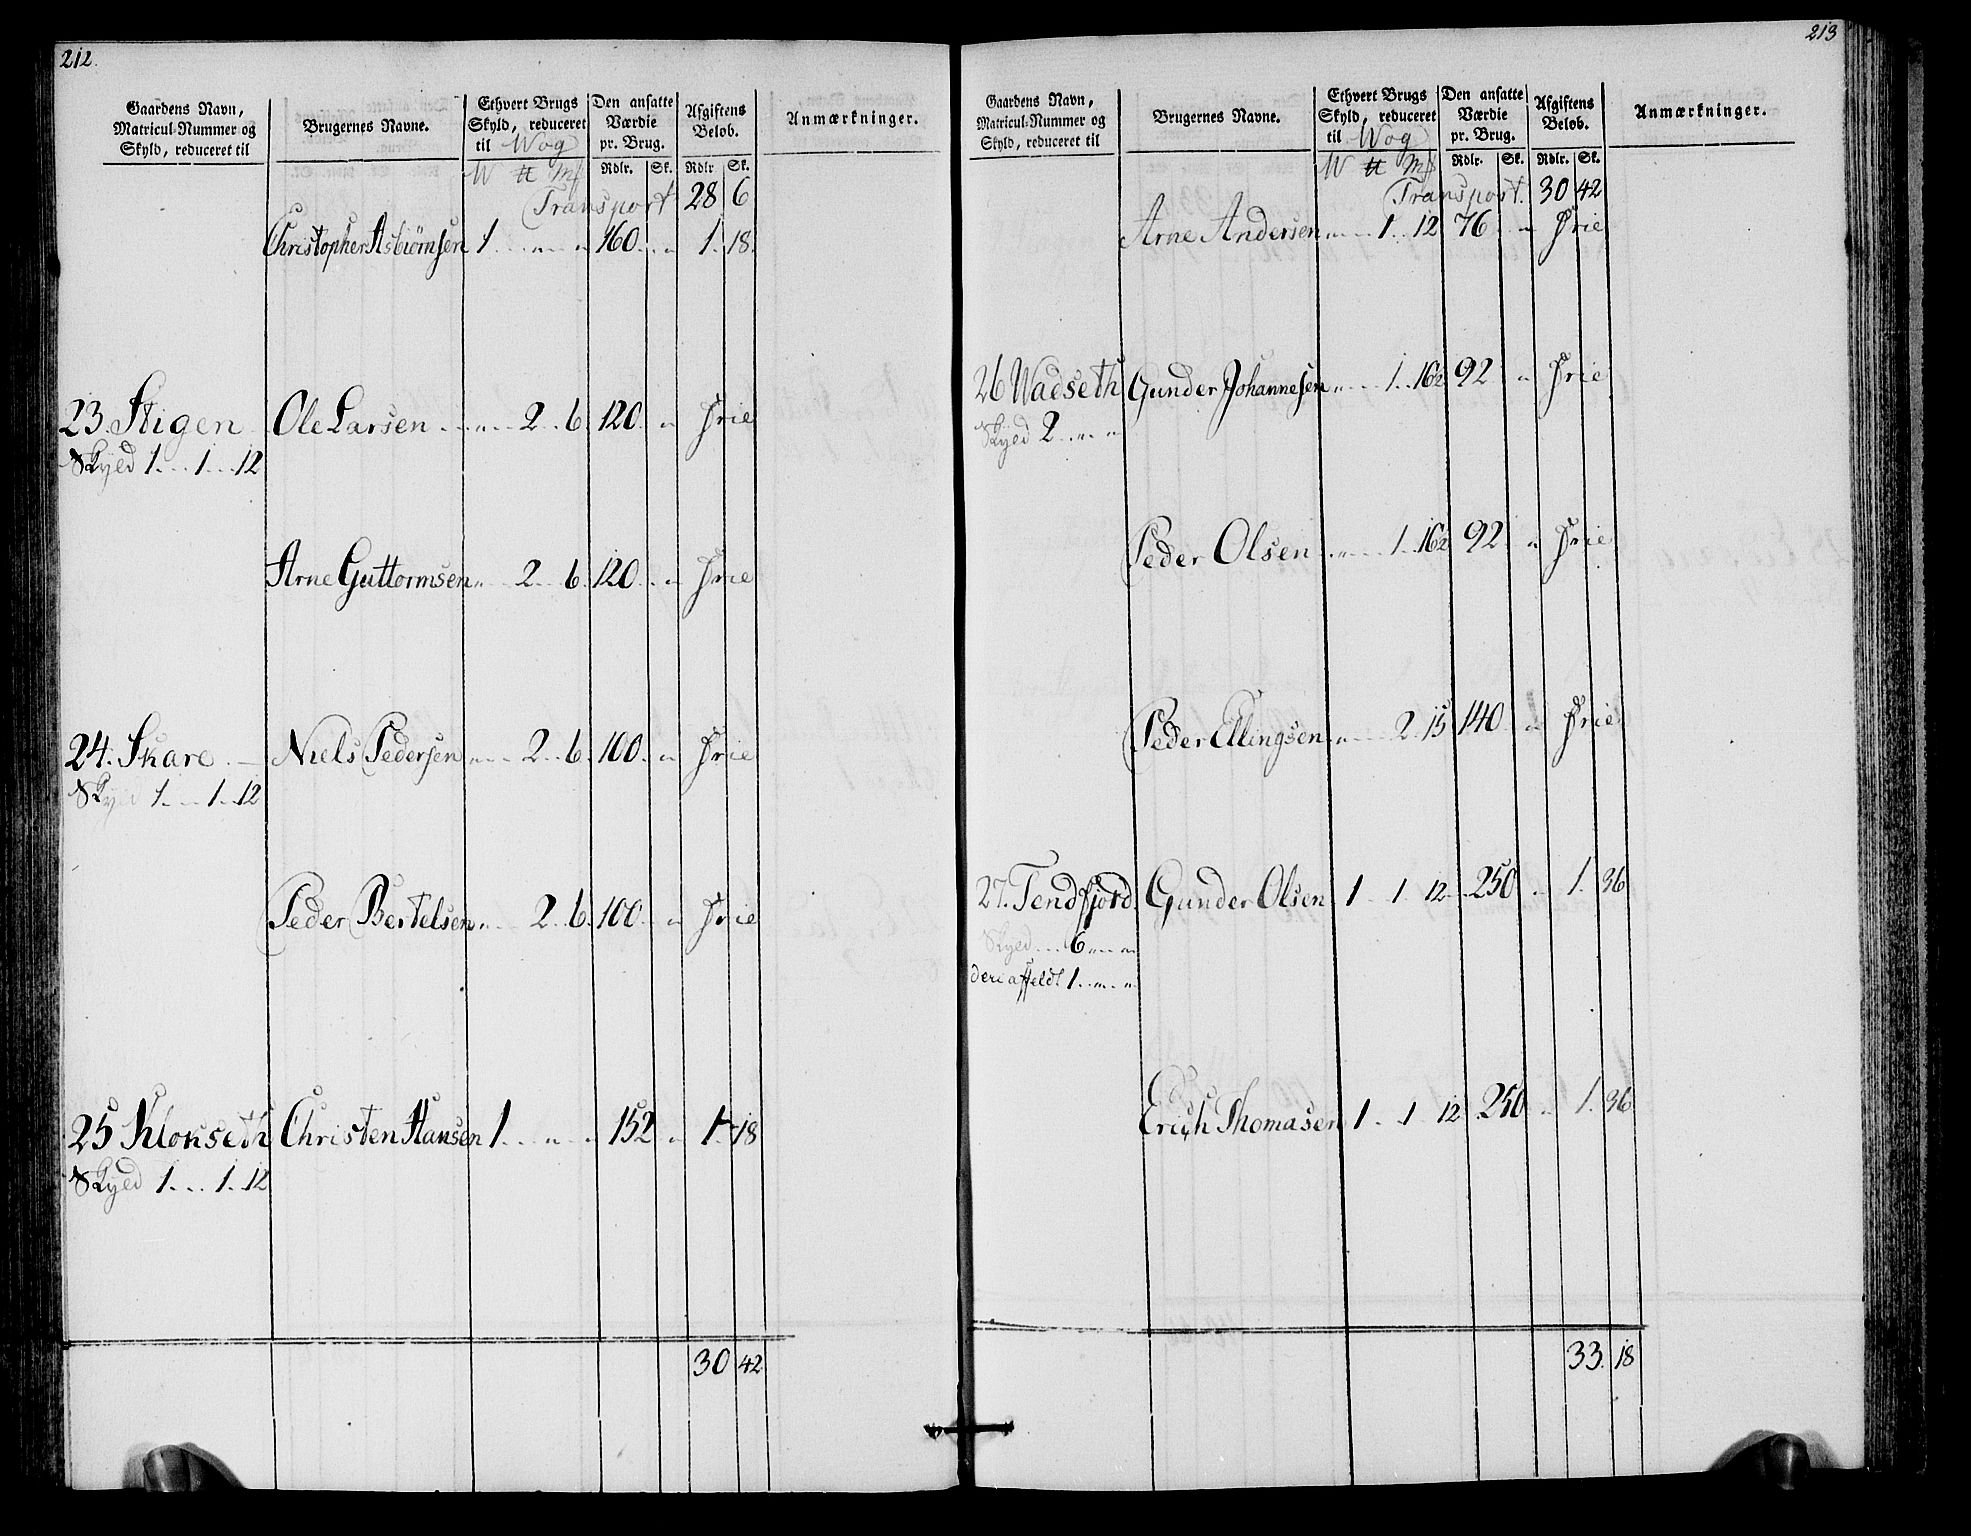 212.
Gaardens Navn, Matricul-Nummer og Skyld, reduceret til | Brugernes Navne. | Ethvert Brugs Skyld, reduceret til Wog | Den ansatte Værdie pr. Brug. | Afgiftens Beløb. | Anmærkninger.
W ℔ Mk | Rdlr. Sk. | Rdlr. Sk.
Transport 28 6
Christopher Asbiørnsen 1 „ „ 160 „ 1 18
23. Stigen Ole Larsen „ 2 6 120 „ Frie
Skyld 1 1 12
Arne Guttormsen „ 2 6 120 „ Frie
24. Skare Niels Pedersen „ 2 6 100 „ Frie
Skyld 1 1 12
Peder Bertelsen „ 2 6 100 „ Frie
25 Klokseth Christen Hansen 1 „ „ 152 „ 1 18
Skyld 1 1 12
30 42
213
Gaardens Navn, Matricul-Nummer og Skyld, reduceret til | Brugernes Navne. | Ethvert Brugs Skyld, reduceret til Wog | Den ansatte Værdie pr. Brug. | Afgiftens Beløb. | Anmærkninger.
W ℔ Mk | Rdlr. Sk. | Rdlr. Sk.
Transport. 30 42
Arne Andersen „ 1 12 76 „ Frie
26 Wadseth Gunder Johannesen „ 1 16½ 92 „ Frie
Skyld 2 „ „
Peder Olsen „ 1 16½ 92 „ Frie
Peder Ellingsen „ 2 15 140 „ Frie
27. Tendfjord Gunder Olsen 1 1 12 250 „ 1 36
Skyld 6 „ „
deri affeldt 1 „ „
Erich Thomasen 1 1 12 250 „ 1 36
33 18